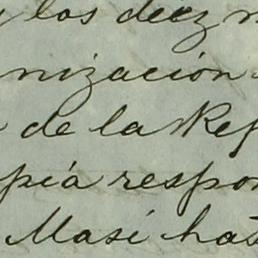 y los diez m
nización
de la Rep
pia respon
Masi has